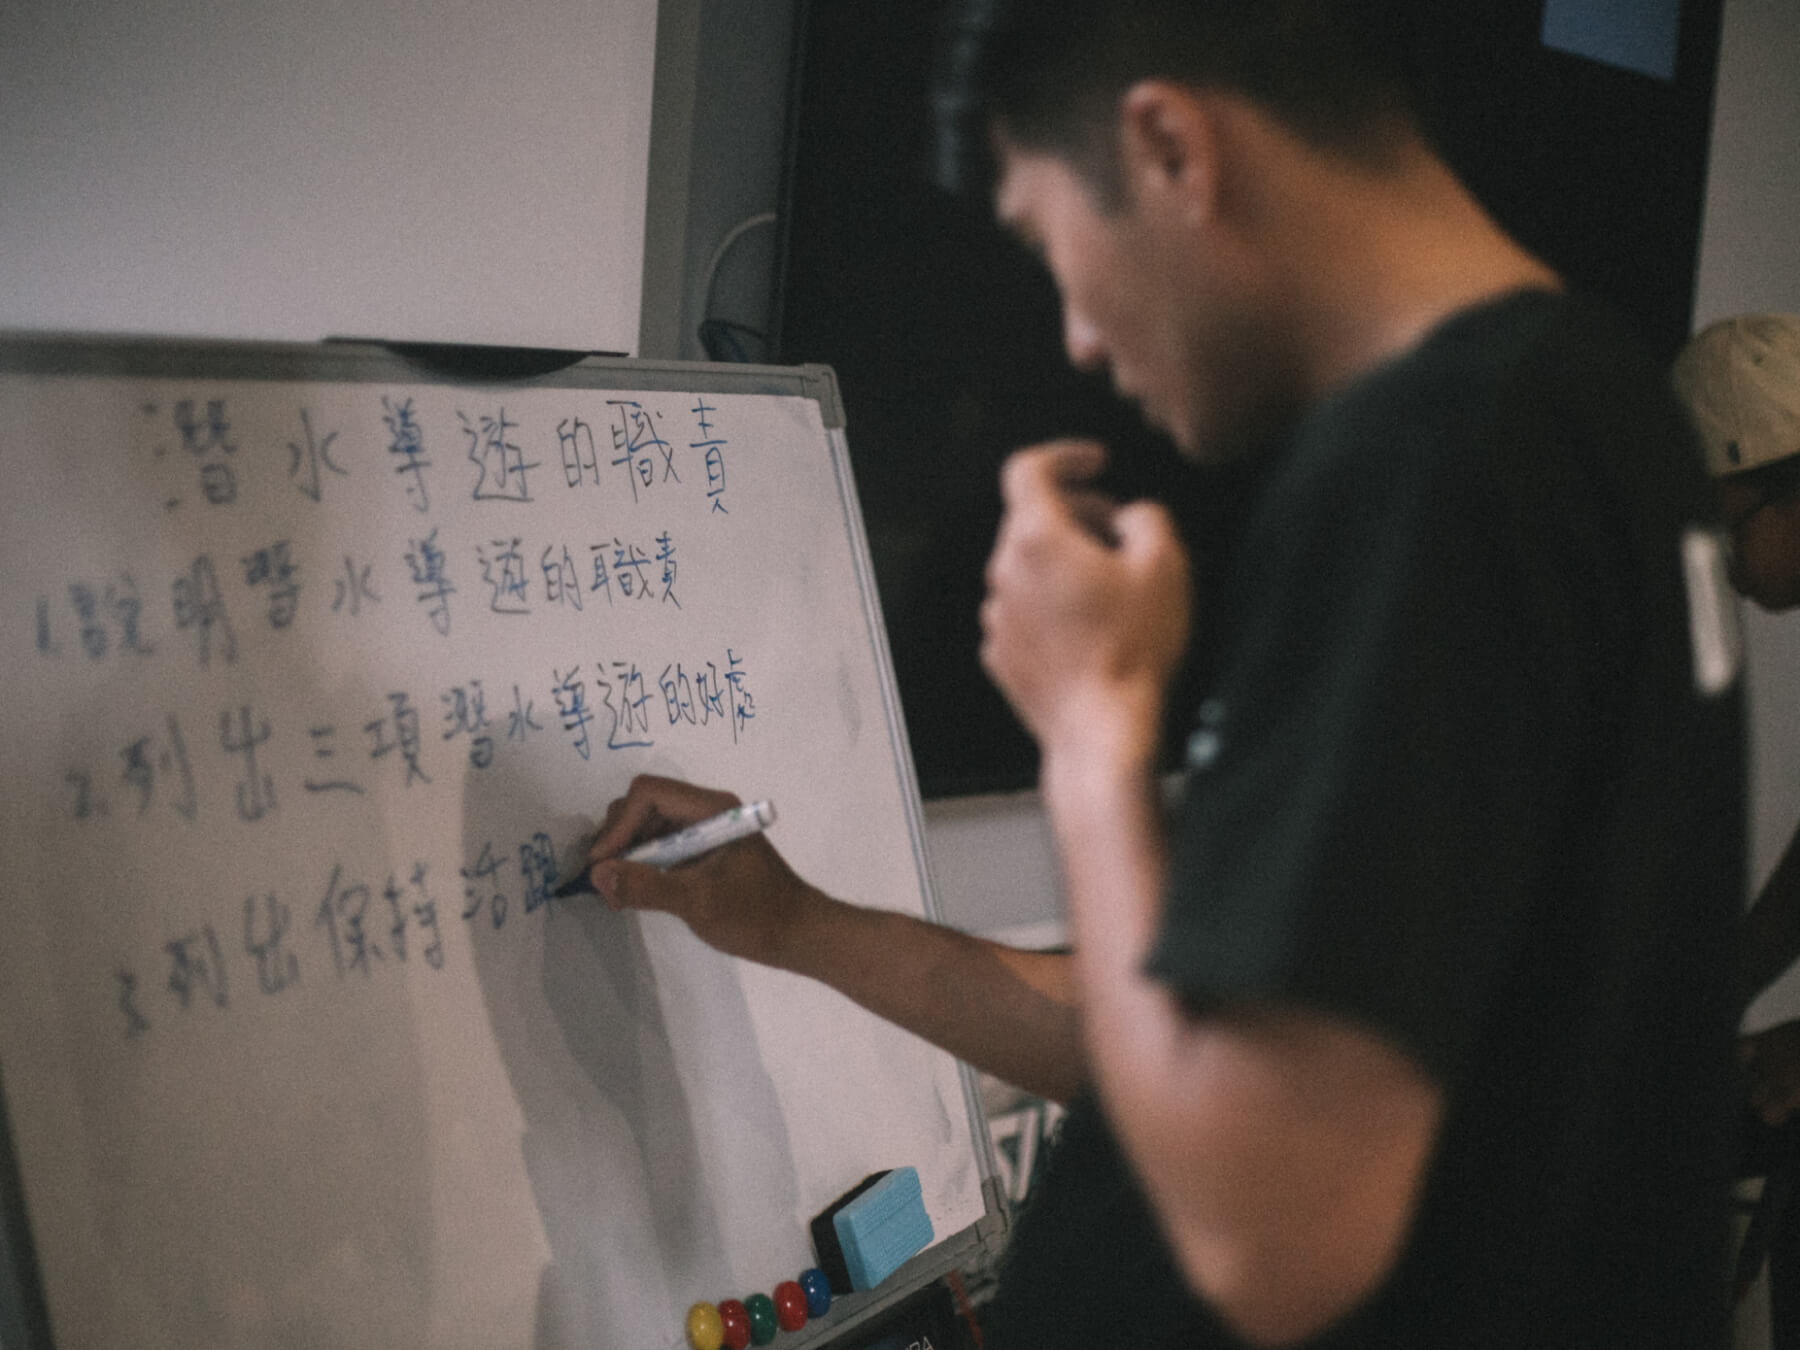 潛水導遊的職責
1.說明潛水導遊的職責
2.列出三項潛水導遊的好處
3.列出保持活躍